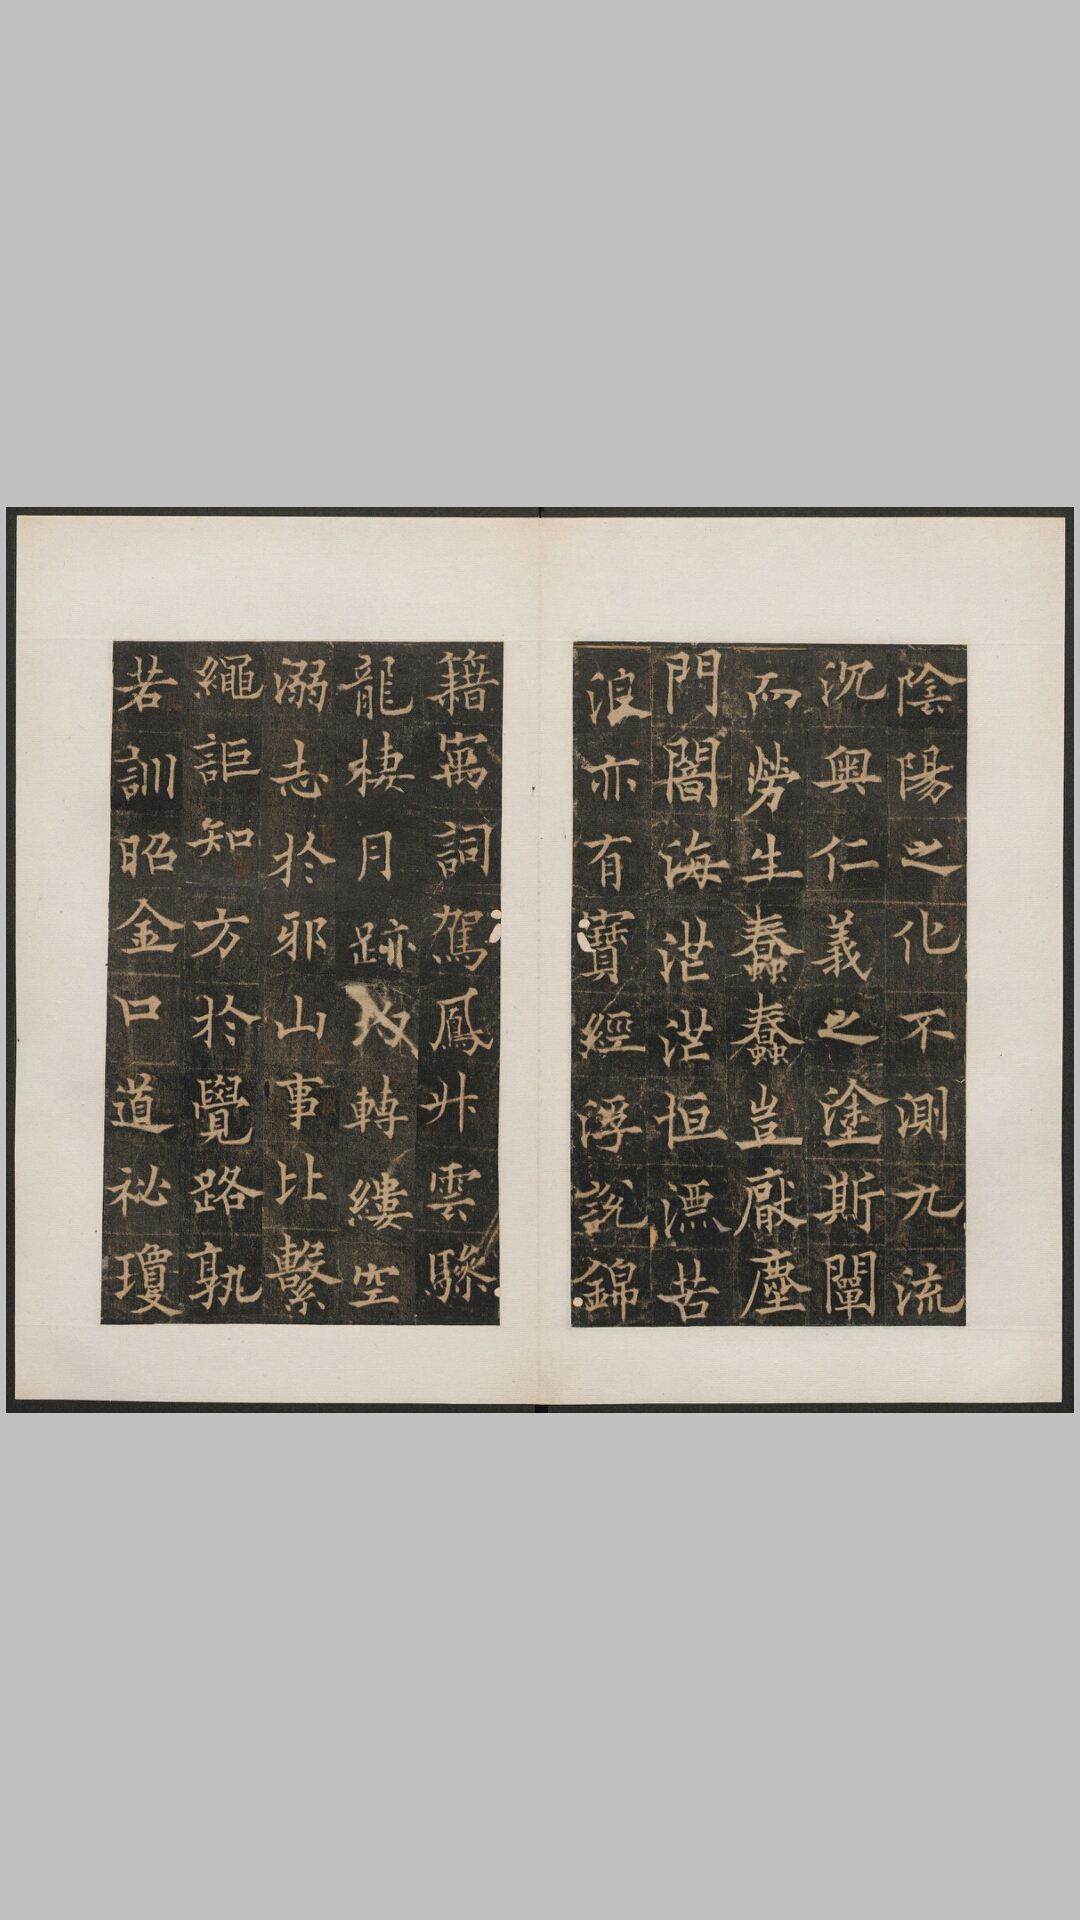 陰陽之化不測九流
沉輿仁義之塗斯闡
而勞生蠢蠢豈厭塵
門闇海茫茫恒漂苦
浪亦有寶經浮說錦
籍寓詞駕鳳升雲驂
龍棲月跡轉縷空
溺志於邪山事比繫
繩詎知方於覺路孰
若訓昭金口道祕瓊